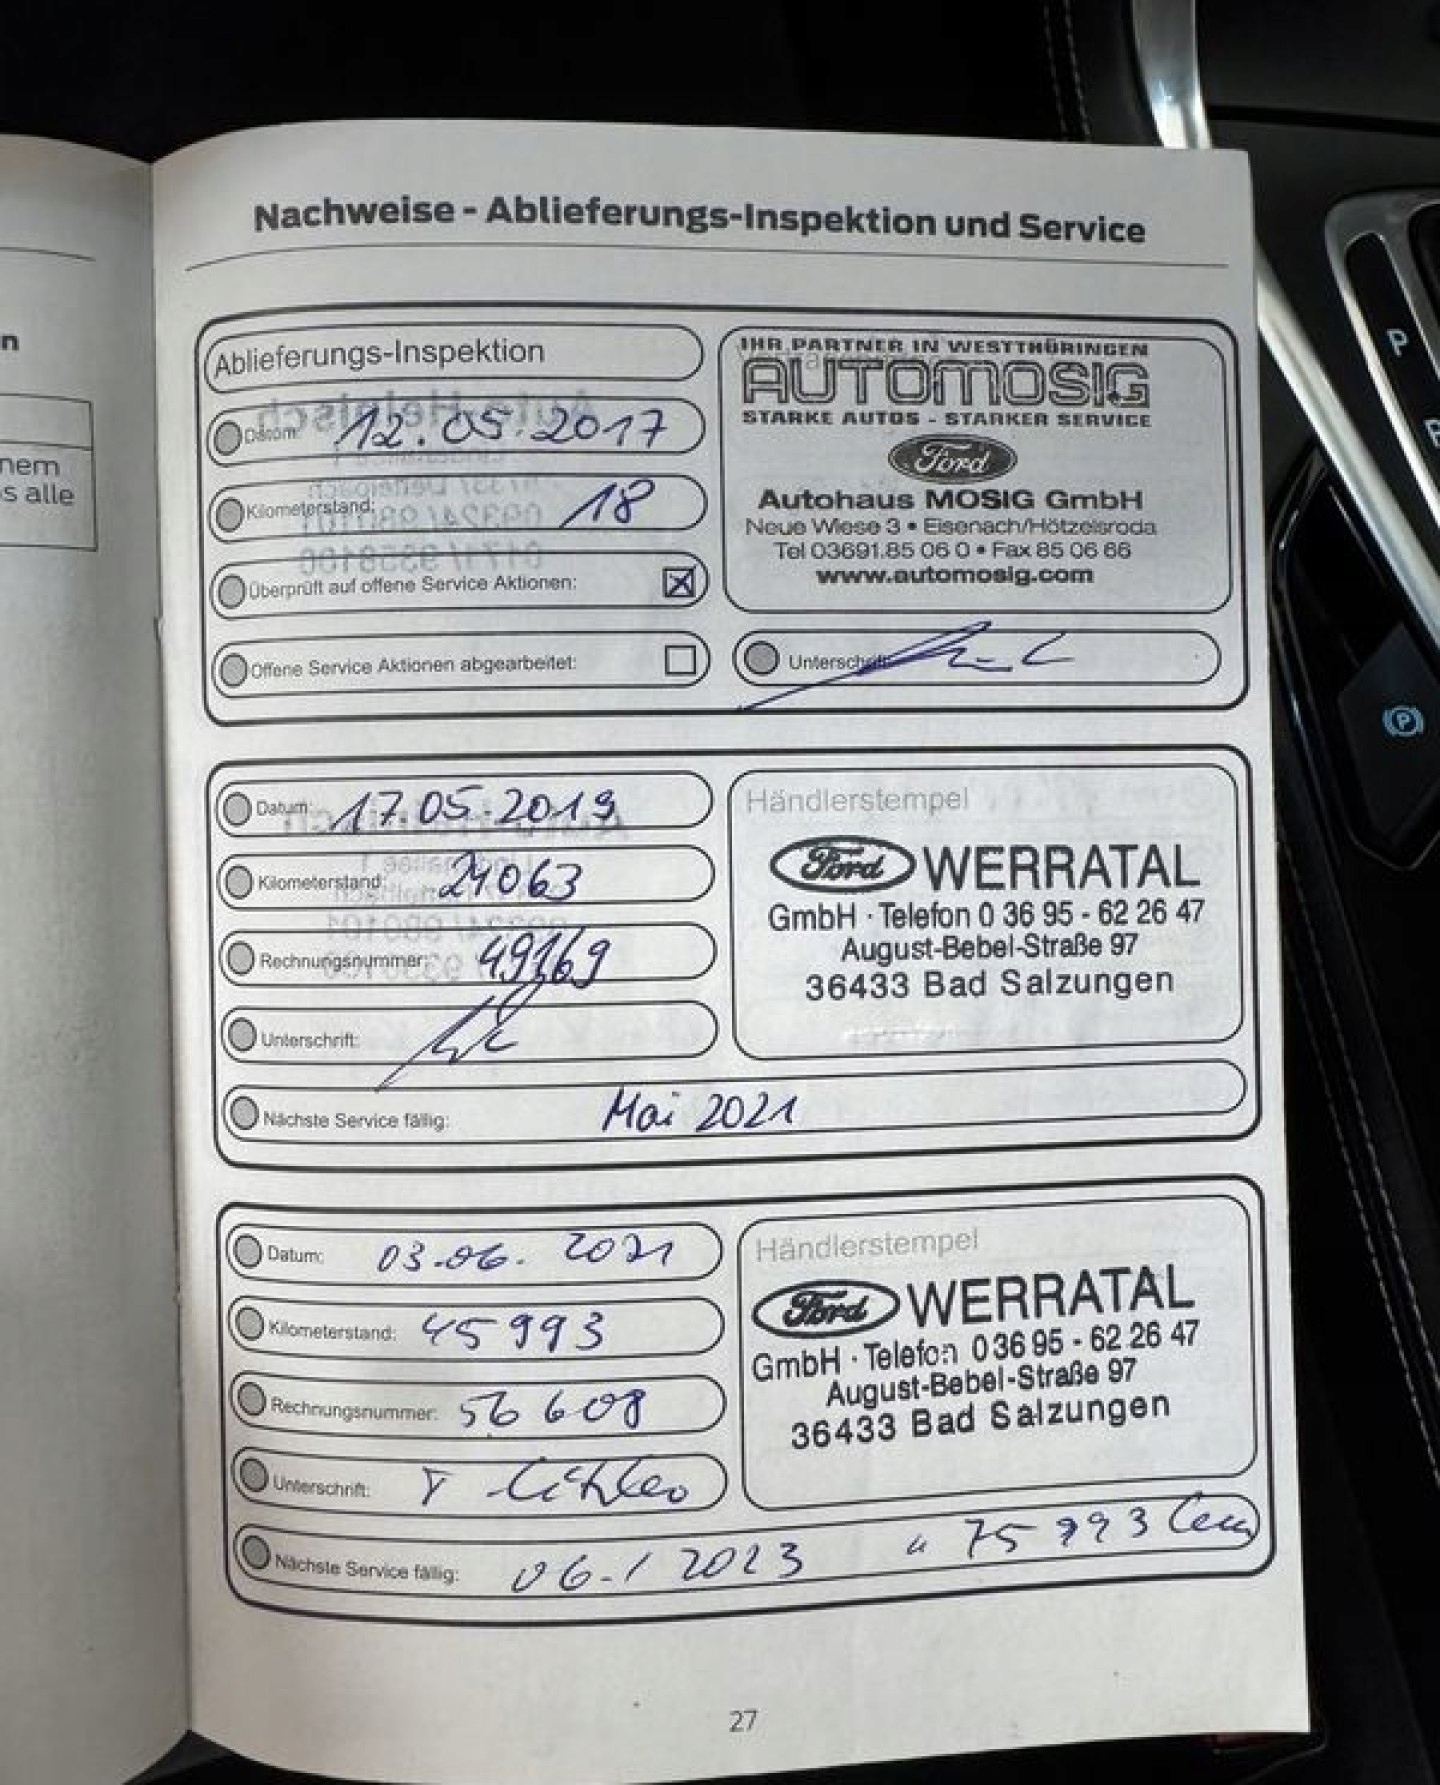 n
nem
s alle
Nachweise - Ablieferungs-Inspektion und Service
Ablieferungs-Inspektion
Datum: 12.05.2017
Kilometerstand: 18
Überprüft auf offene Service Aktionen: ☒
Offene Service Aktionen abgearbeitet: ☐
IHR PARTNER IN WESTTHÜRINGEN
AUTOMOSIG
STARKE AUTOS - STARKER SERVICE
Ford
Autohaus MOSIG GmbH
Neue Wiese 3 • Eisenach/Hötzelsroda
Tel 03691.85 06 0 • Fax 85 06 66
www.automosig.com
Unterschrift:
Datum: 17.05.2019
Kilometerstand: 24063
Rechnungsnummer: 49169
Unterschrift:
Nächste Service fällig: Mai 2021
Händlerstempel
Ford WERRATAL
GmbH · Telefon 0 36 95 - 62 26 47
August-Bebel-Straße 97
36433 Bad Salzungen
Datum: 03.06. 2021
Kilometerstand: 45993
Rechnungsnummer: 56608
Unterschrift:
Nächste Service fällig: 06.1 2023 75993
Händlerstempel
Ford WERRATAL
GmbH · Telefon 0 36 95 - 62 26 47
August-Bebel-Straße 97
36433 Bad Salzungen
27
P
P